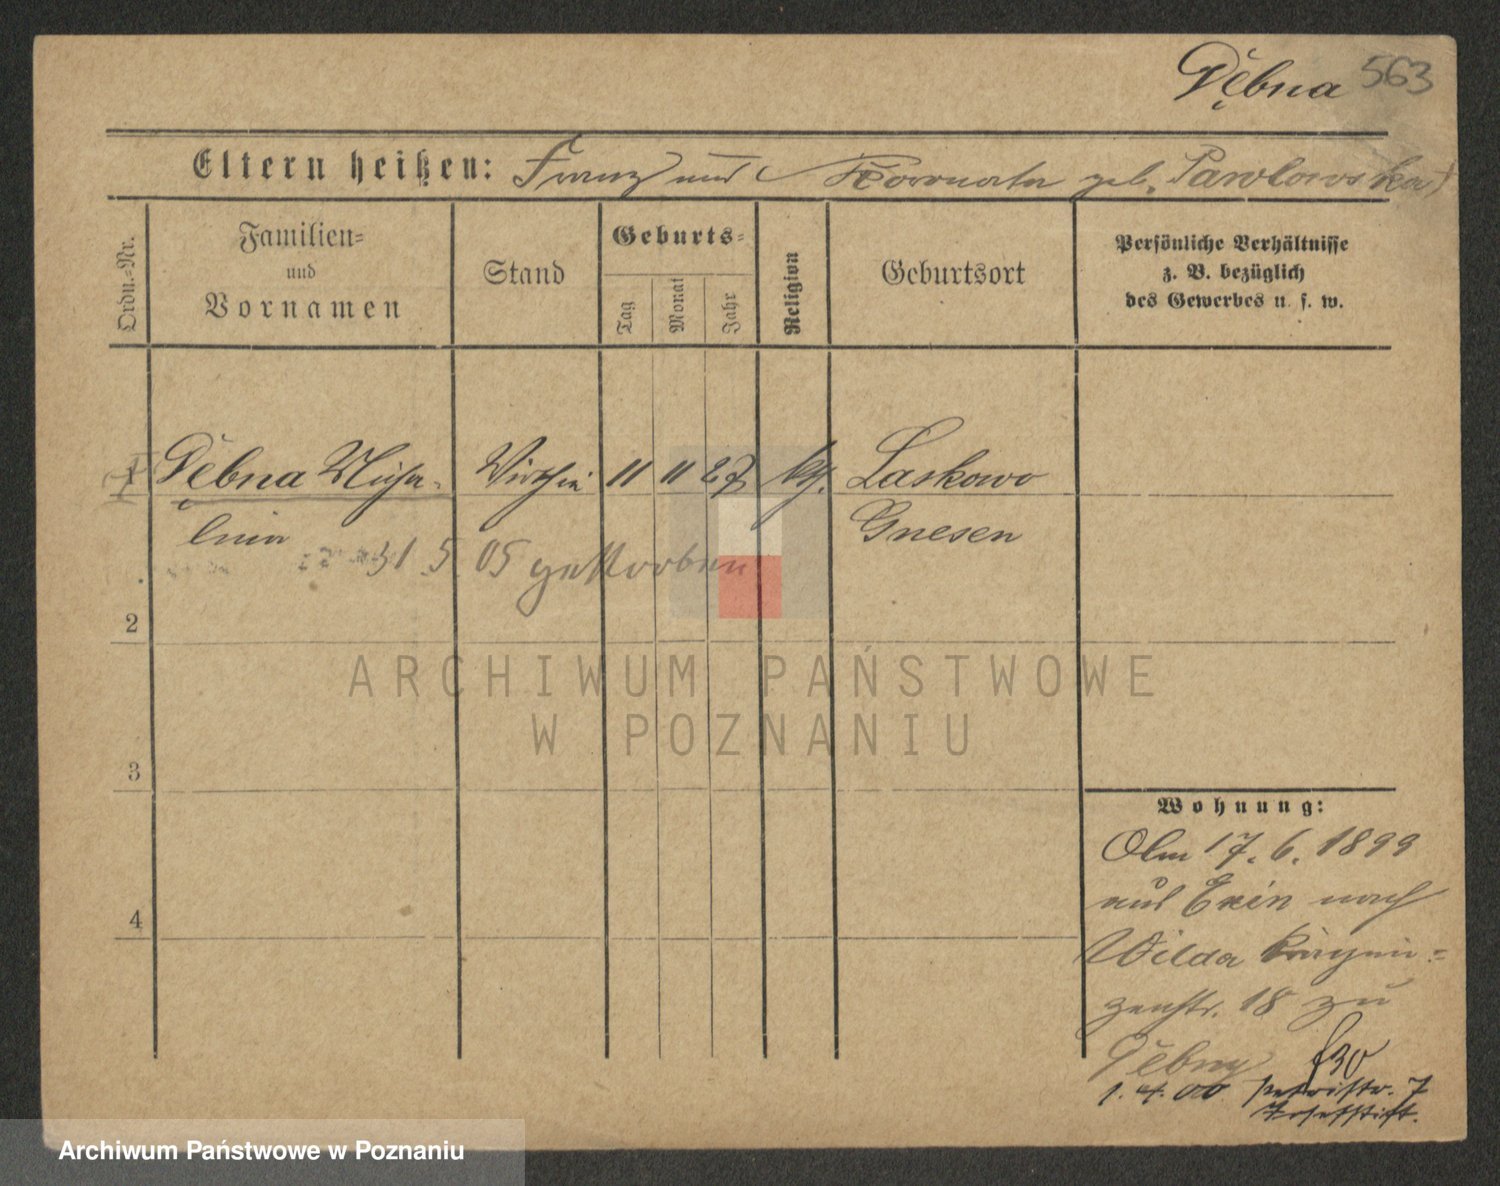 Dębna 563
Eltern heißen: Franz und Koronata geb. Pawlowska
Ordn.-Nr.
Familien-
und
Vornamen
Stand
Geburts-
Tag
Monat
Jahr
Religion
Geburtsort
Persönliche Verhältnisse
z. B. bezüglich
des Gewerbes u. s. w.
1 Dębna Micha-
lina
Wirthin 11 11 27 kth. Laskowo
Gnesen
31 5 05 gestorben
2
ARCHIWUM PAŃSTWOWE
W POZNANIU
3
4
Wohnung:
Am 17. 6. 1899
aus Exin nach
Wilda
18 zu
Dębny f 30
1. 4. 00 Petristr. 7
Josefstift.
Archiwum Państwowe w Poznaniu